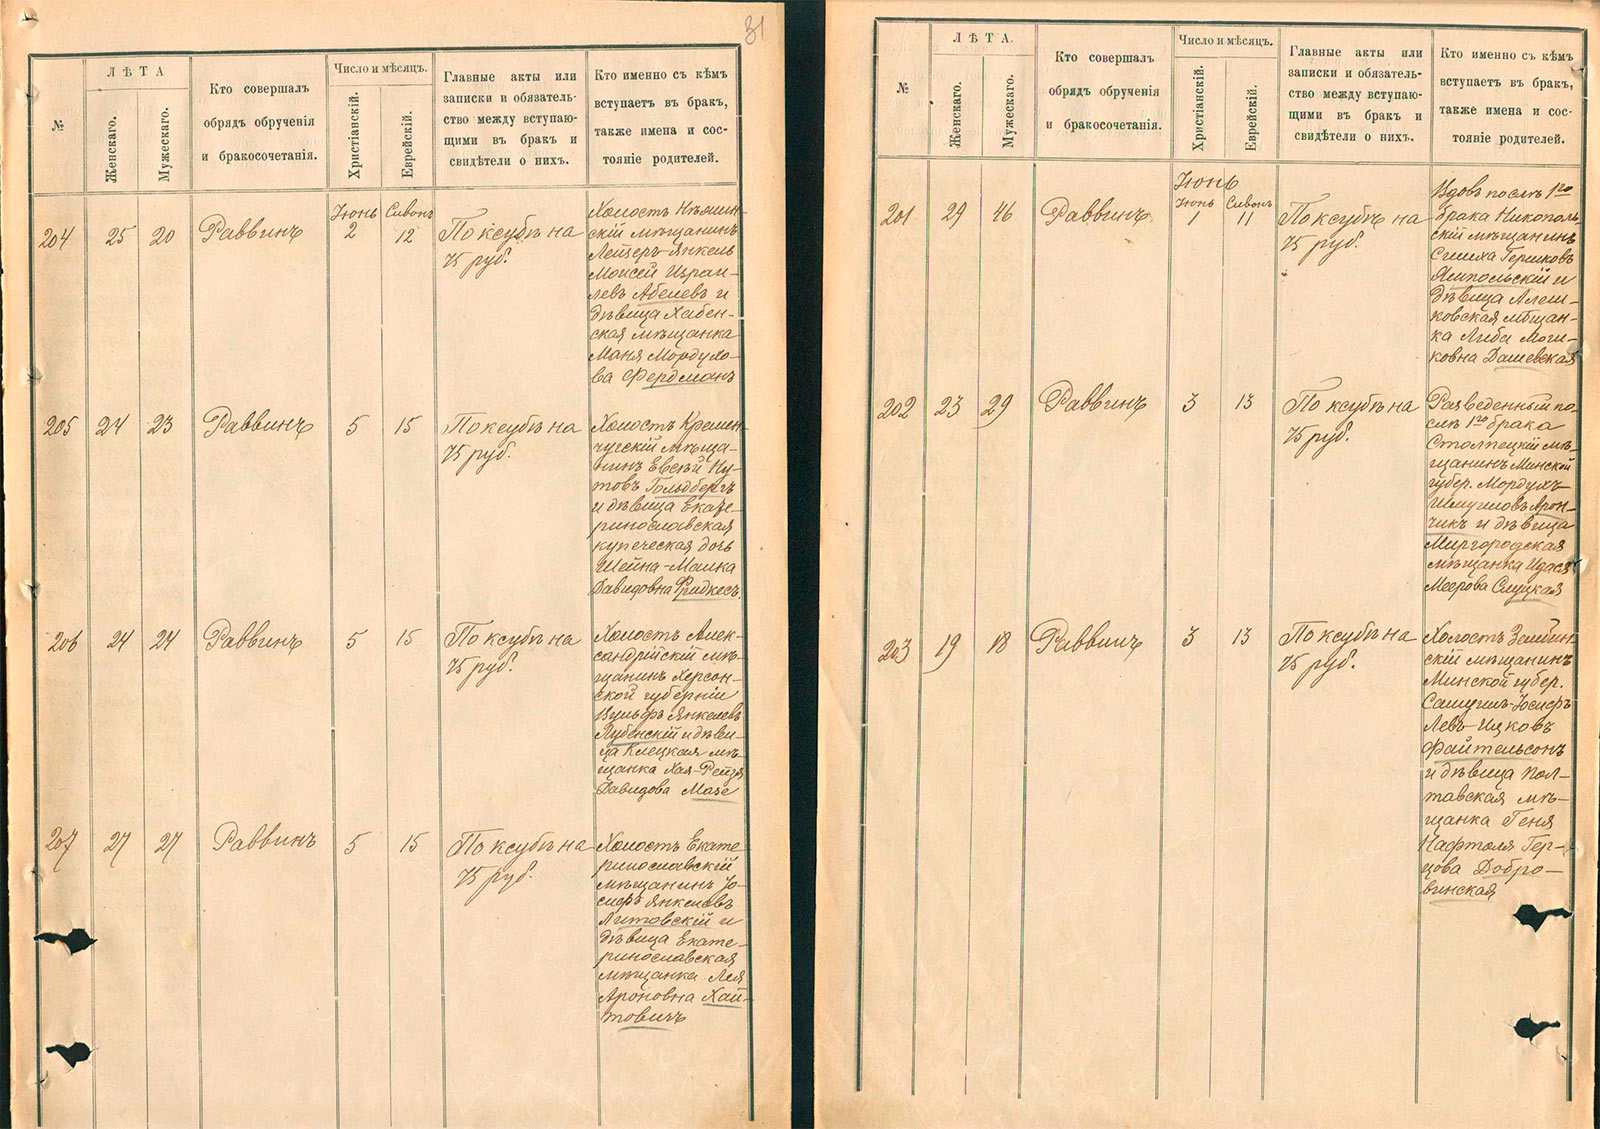 31
№
ЛѢТА
Женскаго.
Мужескаго.
Кто совершалъ
обрядъ обрученія
и бракосочетанія.
Число и мѣсяцъ.
Христіанскій.
Еврейскій.
Главные акты или
записки и обязатель-
ство между вступаю-
щими въ бракъ и
свидѣтели о нихъ.
Кто именно съ кѣмъ
вступаетъ въ бракъ,
также имена и сос-
тояніе родителей.
204 25 20 Раввинъ Іюнь 2 Сивонъ 12
По ксубѣ на
75 руб.
Холостъ
скій мѣщанинъ
Лейзеръ-Янкель
Мовсей Израи-
левъ Абелевъ и
дѣвица Хабен-
ская мѣщанка
Маня Мордухо-
ва Фердманъ
205 24 23 Раввинъ 5 15
По ксубѣ на
75 руб.
Холостъ Кремен-
чугскій мѣща-
нинъ Евсѣй Ну-
товъ Гольдбергъ
и дѣвица Екате-
ринославская
купеческая дочь
Шейна-Малка
Давидовна Фридкесъ.
206 24 24 Раввинъ 5 15
По ксубѣ на
75 руб.
Холостъ Алек-
сандрійскій мѣ-
щанинъ Херсон-
ской губерніи
Вульфъ Янкелевъ
Лубенскій и дѣви-
ца Клецкая мѣ-
щанка Хая-Рейзя
Давидова Мазе
207 27 27 Раввинъ 5 15
По ксубѣ на
75 руб.
Холостъ Екате-
ринославскій
мѣщанинъ Іо-
сифъ Янкелевъ
Литовскій и
дѣвица Екате-
ринославская
мѣщанка Лея
Ароновна Хай-
товичъ
№
ЛѢТА.
Женскаго.
Мужескаго.
Кто совершалъ
обрядъ обрученія
и бракосочетанія.
Число и мѣсяцъ.
Христіанскій.
Еврейскій.
Главные акты или
записки и обязатель-
ство между вступаю-
щими въ бракъ и
свидѣтели о нихъ.
Кто именно съ кѣмъ
вступаетъ въ бракъ,
также имена и сос-
тояніе родителей.
Іюнь
201 29 46 Раввинъ Іюнь 1 Сивонъ 11
По ксубѣ на
75 руб.
Вдовъ послѣ 1го
брака Никополь-
скій мѣщанинъ
Симха Гершковъ
Ямпольскій и
дѣвица Алеш-
ковская мѣщан-
ка Либа
Дашевская
202 23 29 Раввинъ 3 13
По ксубѣ на
75 руб.
Разведенный по-
слѣ 1го брака
Столпецкій мѣ-
щанинъ Минской
губер. Мордухъ
Шмуиловъ Арон-
чикъ и дѣвица
Миргородская
мѣщанка Идася
Меерова Слуцкая
203 19 18 Раввинъ 3 13
По ксубѣ на
75 руб.
Холостъ Зембин-
скій мѣщанинъ
Минской губер.
Самуилъ-Іосифъ
Левъ-Ицковъ
Файтельсонъ
и дѣвица Пол-
тавская мѣ-
щанка Геня
Нафтоля Гер-
цова Добро-
винская